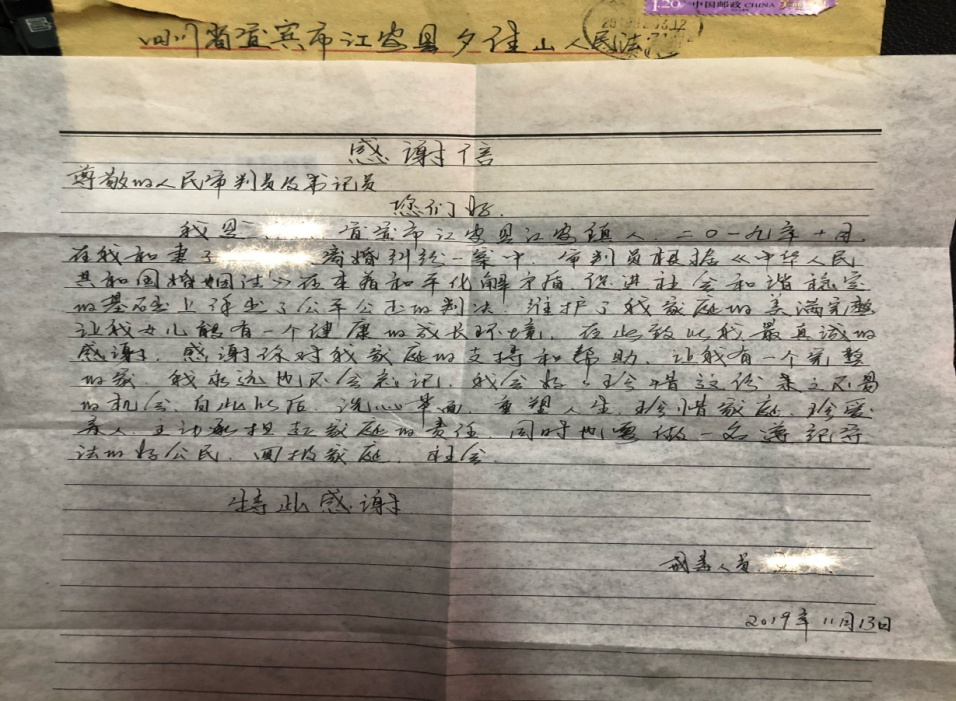 1.20 中国邮政 CHINA
四川省宜宾市江安县夕佳山人民法
感谢信
尊敬的人民审判员及书记员
您们好.
我是 宜宾市江安县江安镇人.二0一九年十月.
在我和妻子 离婚纠纷一案中.审判员根据《中华人民
共和国婚姻法》在本着和平化解矛盾.促进社会和谐稳定
的基础上作出了公平公正的判决.维护了我家庭的美满完整
让我女儿能有一个健康的成长环境.在此致以我最真诚的
感谢.感谢你对我家庭的支持和帮助.让我有一个完整
的家.我永远也不会忘记.我会好好珍惜这份来之不易
的机会.自此以后.洗心革面.重塑人生.珍惜家庭.珍爱
亲人.主动承担起家庭的责任.同时也要做一名遵纪守
法的好公民.回报家庭.社会.
特此感谢
人员
2019年11月13日